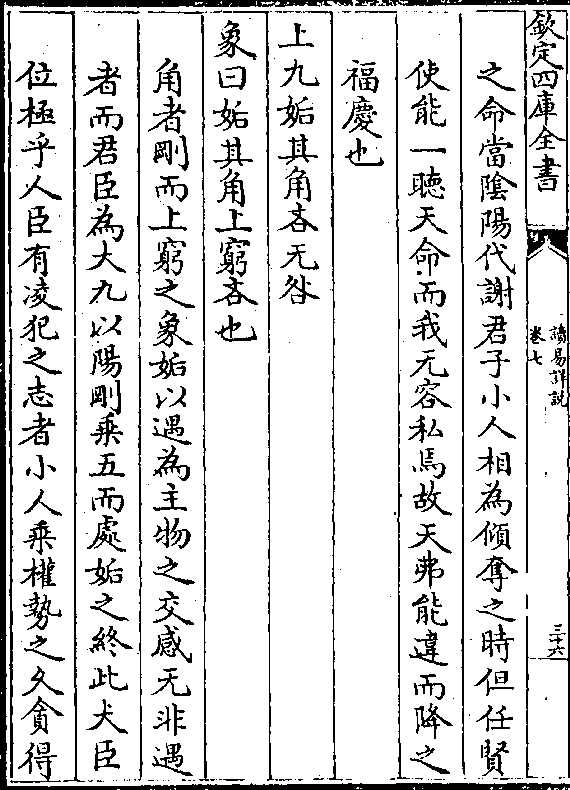 欽定四庫全書
讀易詳說
卷七
三十六
之命當隂陽代謝君子小人相為傾奪之時但任賢
使能一聽天命而我无容私焉故天弗能違而降之
福慶也
上九姤其角吝无咎
象曰姤其角上窮吝也
角者剛而上窮之象姤以遇為主物之交感无非遇
者而君臣為大九以陽剛乗五而處姤之終此大臣
位極乎人臣有凌犯之志者小人乗權勢之久貪得